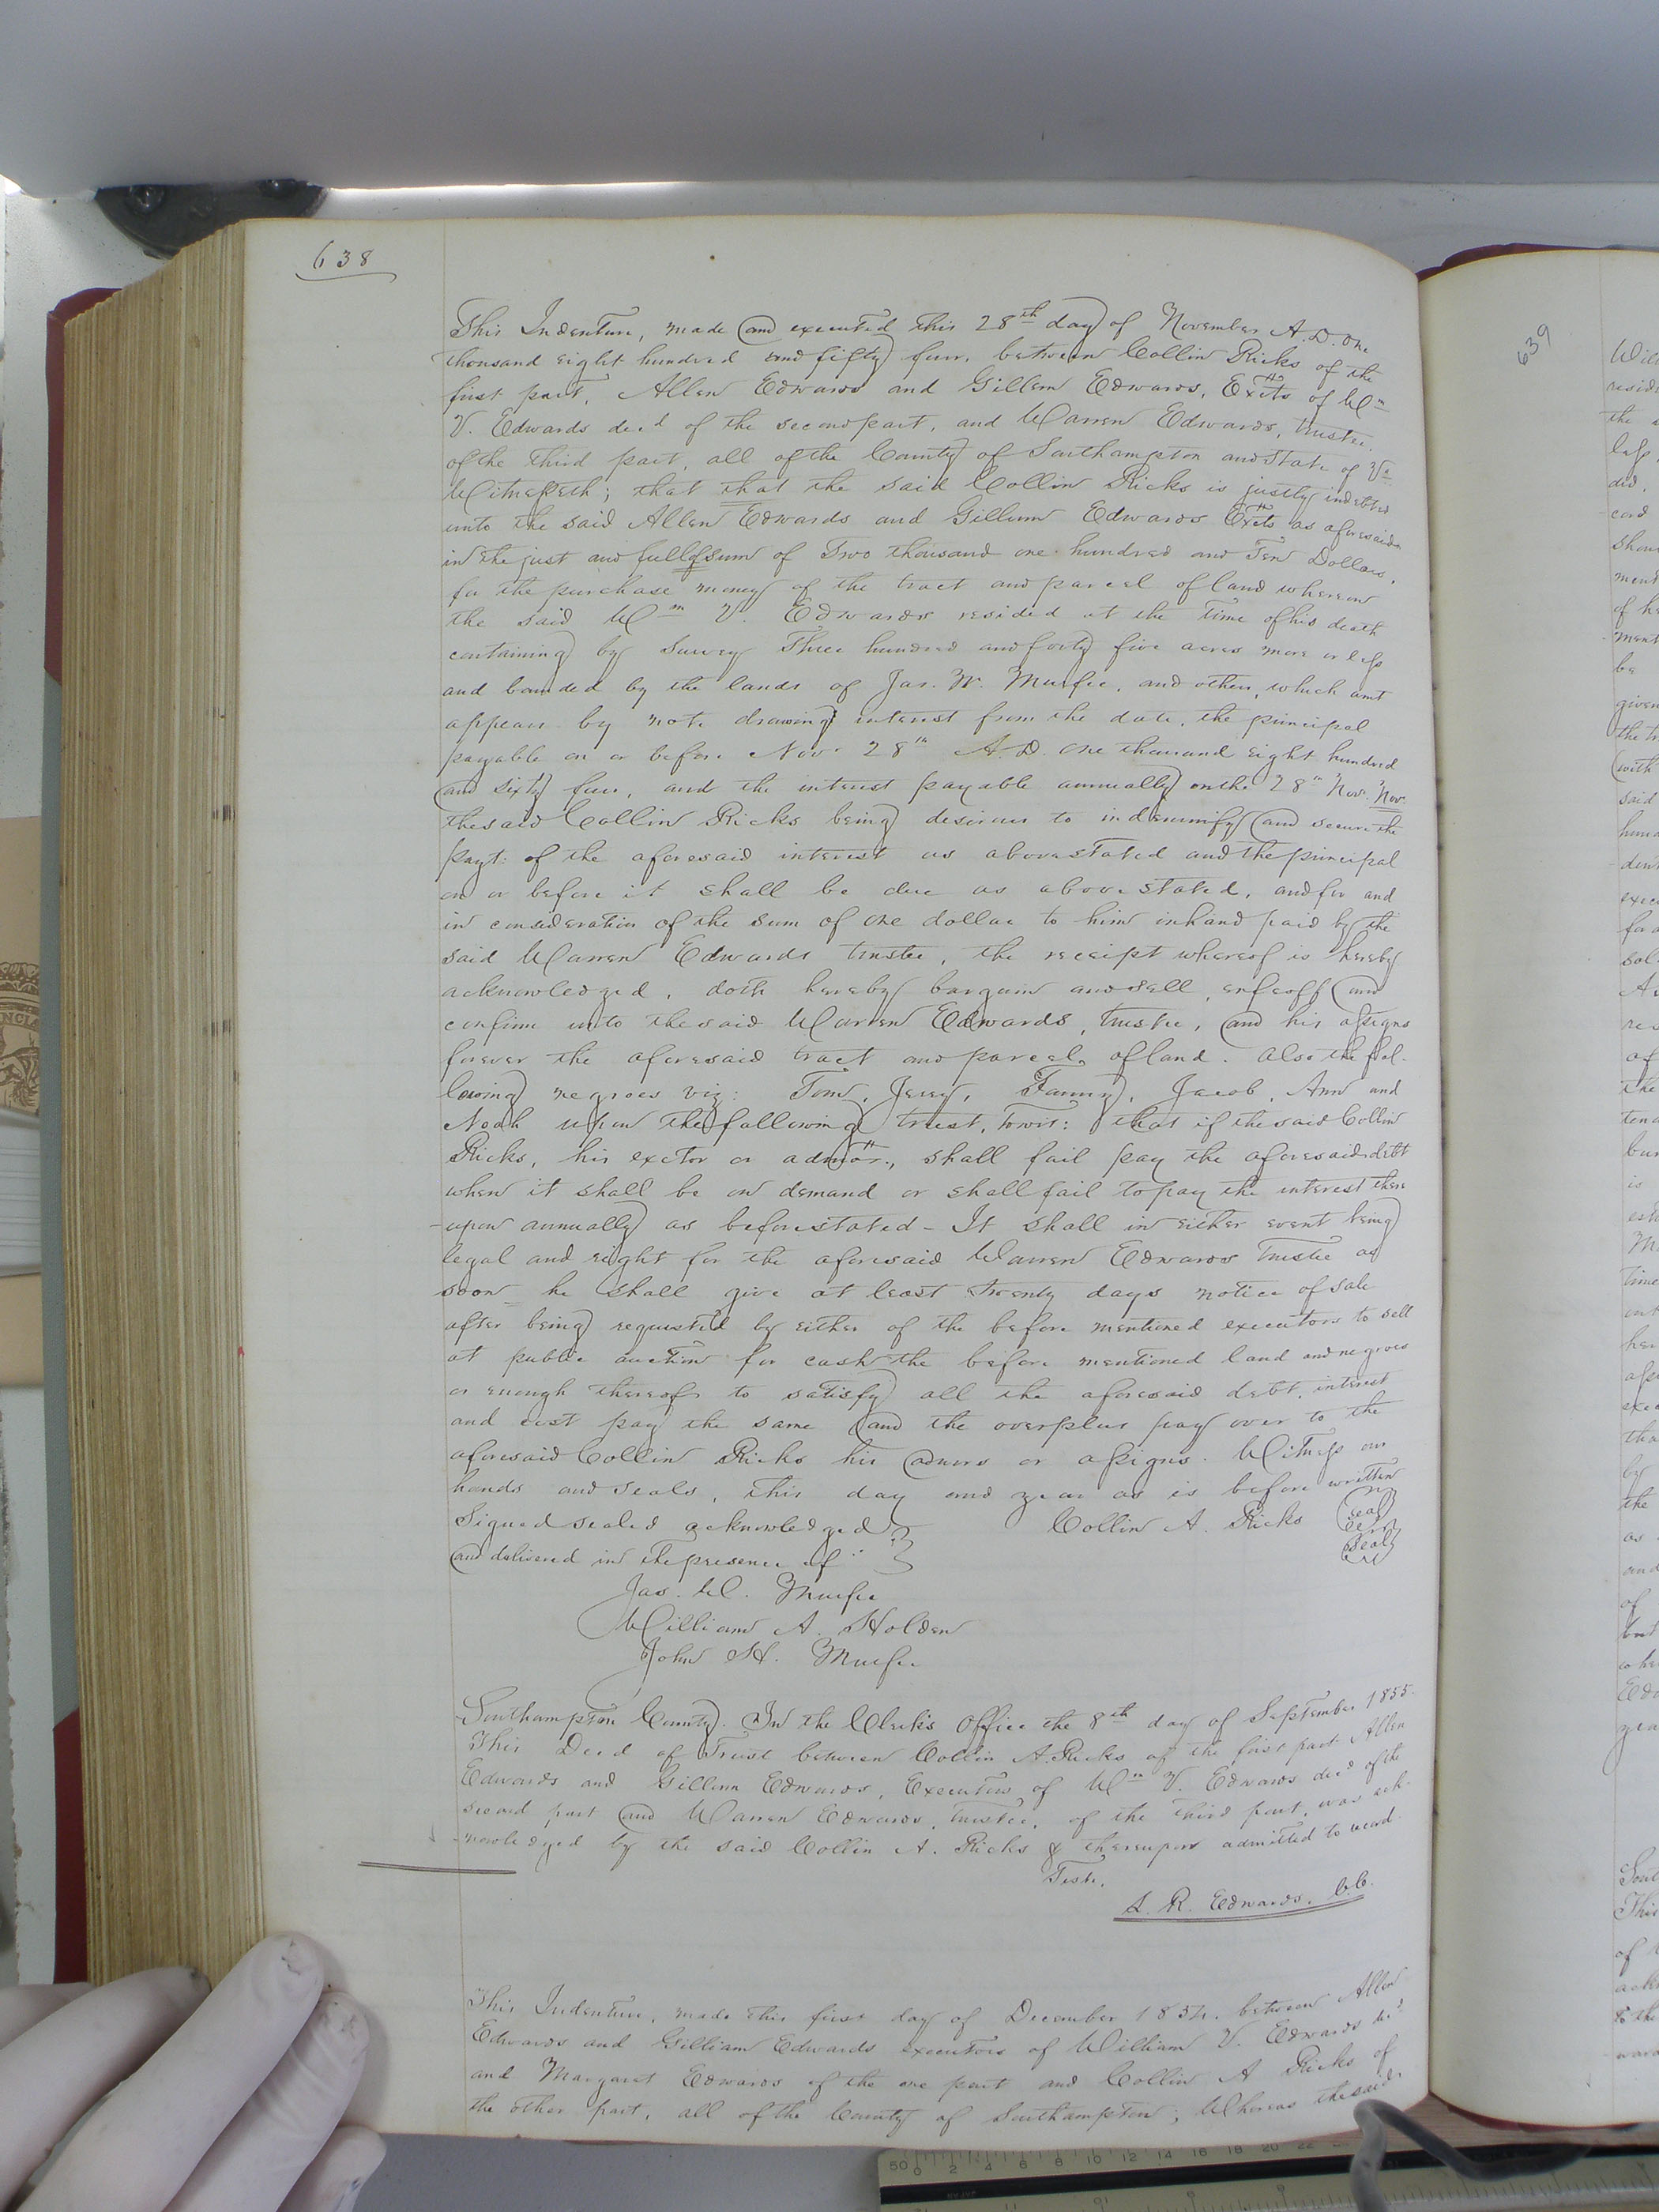 638
This Indenture, made and executed this 28th day of November A.D. One
thousand eight hundred and fifty four, between Collin Ricks of the
first part, Allen Edwards and Gillum Edwards, Exts of Wm
V. Edwards decd of the second part, and Warren Edwards, trustee
of the third part, all of the County of Southampton and State of Va
Witnesseth; that that the said Collin Ricks is justly indebted
unto the said Allen Edwards and Gillum Edwards Exts as aforesaid
in the just and full of sum of Two thousand one hundred and Ten Dollars,
for the purchase money of the tract and parcel of land whereon
the said Wm V. Edwards resided at the time of his death
containing by Survey Three hundred and forty five acres more or less
and bounded by the lands of Jas. W. Murfee, and others, which amt
appears by note drawing interest from the date, the principal
payable on or before Novr 28th A.D. One thousand eight hundred
and sixty four, and the interest payable annually on the 28th Nov. Nov.
the said Collin Ricks being desirous to indemnify and secure the
payt: of the aforesaid interest as above stated and the principal
on or before it shall be due as above stated, and for and
in consideration of the sum of one dollar to him in hand paid by the
said Warren Edwards trustee, the receipt whereof is hereby
acknowledged, doth hereby bargain and sell, enfeoff and
confirm unto the said Warren Edwards, trustee, and his assigns
forever the aforesaid tract and parcel of land. Also the fol-
lowing negroes viz: Tom, Jerry, Fanny, Jacob, Ann and
Noah upon the following trust, towit: that if the said Collin
Ricks, his exctor or admor., shall fail pay the aforesaid debt
when it shall be on demand or shall fail to pay the interest there
-upon annually as before stated - It shall in either event being
legal and right for the aforesaid Warren Edwards trustee as
soon he shall give at least twenty days notice of sale
after being requested by either of the before mentioned executors to sell
at public auction for cash the before mentioned land and negroes
or enough thereof to satisfy all the aforesaid debt, interest
and cost pay the same and the overplus pay over to the
aforesaid Collin Ricks his admors or assigns. Witness our
hands and seals, this day and year as is before written
Signed sealed acknowledged } Collin A. Ricks (seal)
and delivered in the presence of } (seal)
Jas. W. Murfee
William A. Holden
John H. Murfee
Southampton County. In the Clerk's Office the 8th day of September 1855.
This Deed of Trust between Collin A. Ricks of the first part Allen
Edwards and Gillum Edwards, Executors of Wm V. Edwards decd of the
second part and Warren Edwards, trustee, of the third part, was ack-
nowledged by the said Collin A. Ricks & thereupon admitted to record.
Teste,
L. R. Edwards. C.C.
This Indenture, made this first day of December 1854, between Allen
Edwards and Gilliam Edwards executors of William V. Edwards decd
and Margaret Edwards of the one part and Collin A Ricks of
the other part, all of the County of Southampton; Whereas the said
639